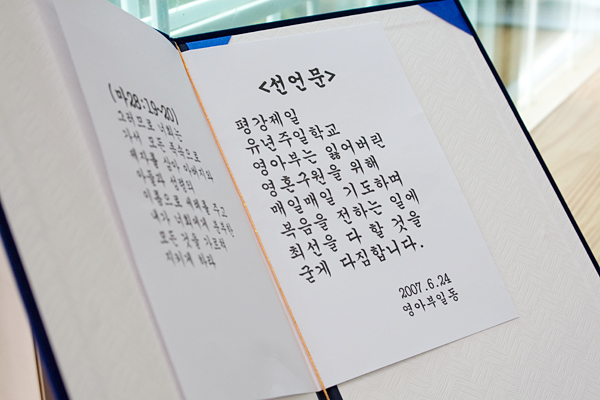 (마28:19-20)
그러므로 너희는
가서 모든 족속으로
제자를 삼아 아버지와
아들과 성령의
이름으로 세례를 주고
내가 너희에게 분부한
모든 것을 가르쳐
지키게 하라
<선언문>
평강제일
유년주일학교
영아부는 잃어버린
영혼구원을 위해
매일매일 기도하며
복음을 전하는 일에
최선을 다 할 것을
굳게 다짐합니다.
2007.6.24
영아부일동